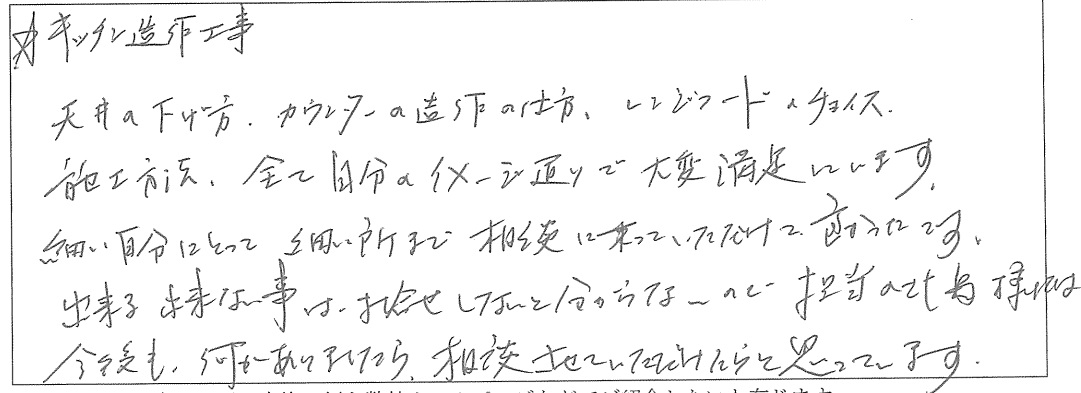 キッチン造作工事
天井の下げ方、カウンターの造作の仕方、レンジフードのチョイス、
施工方法、全て自分のイメージ通りで大変満足しています。
細い自分にとって細い所まで相談に乗っていただけて良かったです。
出来る出来ない事は、お任せしないと分からないので担当の 様には
今後も、何かありましたら、相談させていただけたらと思っています。